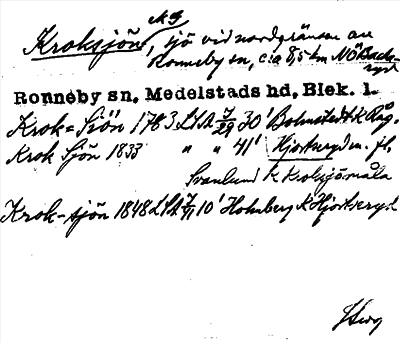 Kroksjön, sjö vid nordgränsen av
Ronneby sn, c:a 8,5 km NÖ Backa-
ryd
Ronneby sn, Medelstads hd, Blek. l.
Krok-Siön 1783 LSA 7/29 30' Bolmstedt k Råg.
Krok Sjön 1833 " " 41' Hjortseryd m. fl.
Svanlund k Kroksjömåla
Krok-sjön 1848 LSA 7/41 10' Holmberg k Hjortseryd